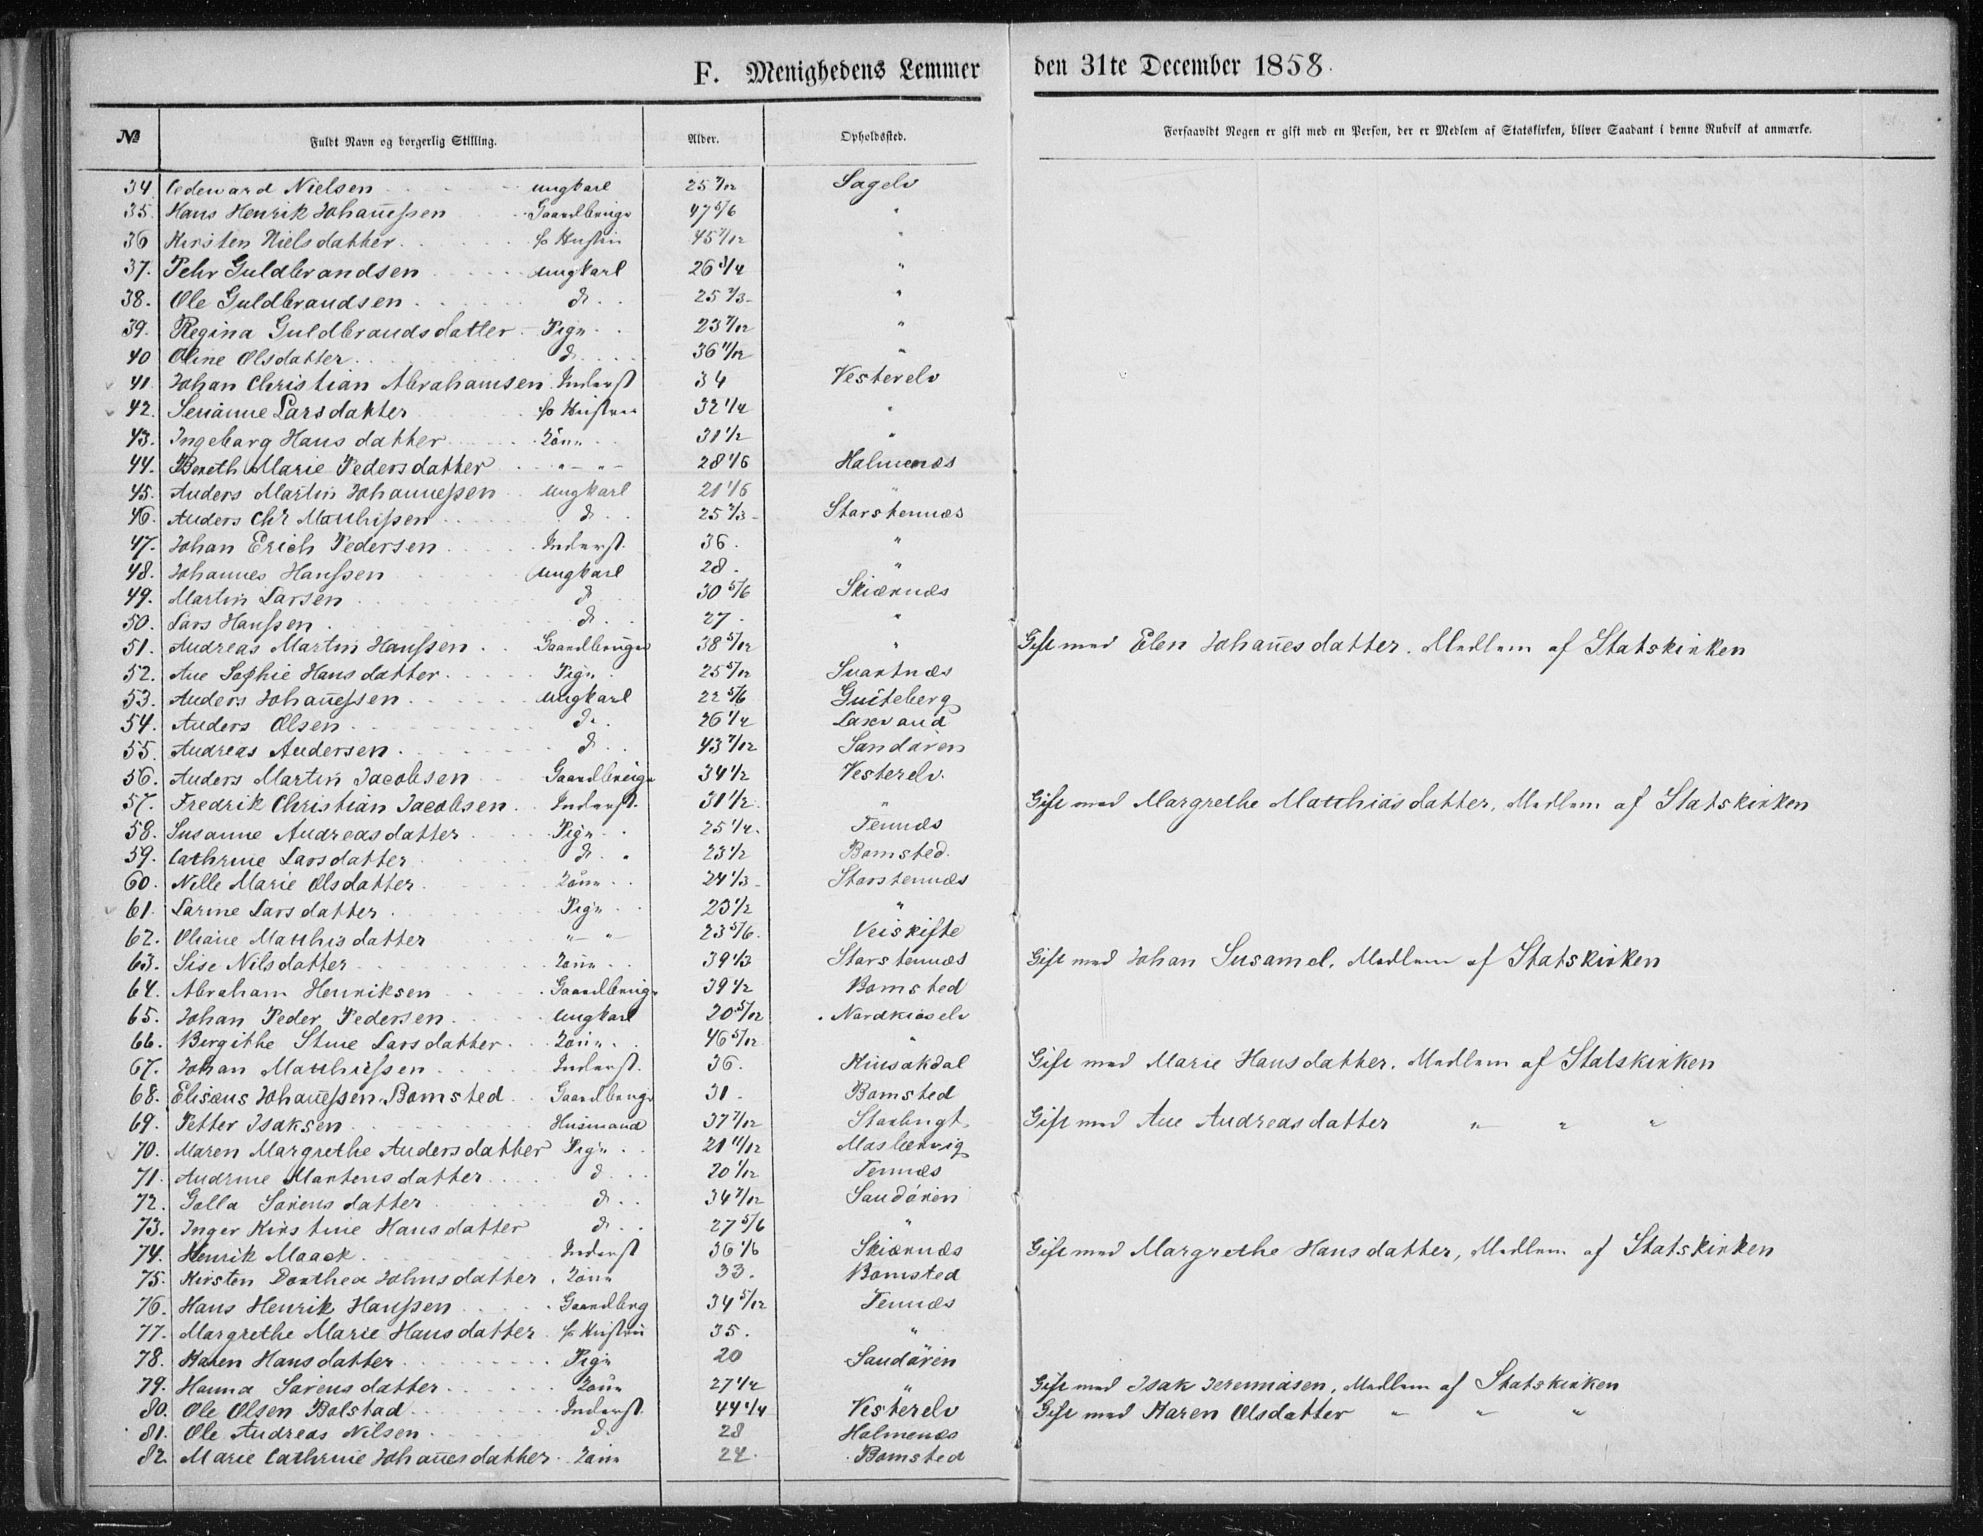 F. Menighedens Lemmer den 31te December 1858.
№ Fuldt Navn og borgerlig Stilling. Alder. Opholdssted. Forsaavidt Nogen er gift med en Person, der er Medlem af Statskirken, bliver Saadant i denne Rubrik at anmærke.
34 Nielsen ungkarl 25 7/12 Sagelv
35. Hans Henrik Johan̄eſsen Gaardbruger 47 5/6 "
36 Kirsten Nielsdatter. Hustru 45 "
37. Pehr Guldbrandsen ungkarl 26 3/4 "
38. Ole Guldbrandsen d. 25 "
39. Regina Guldbrandsdatter Pige 23 7/12 "
40 Oline Olsdatter d. 36 11/12 "
41. Johan Christian Abrahamsen Inderst 34 Vesterelv
42. Serianne Larsdatter Hustru 32 1/4 "
43. Ingebarg Hans datter Kone 31 1/2 "
44. Bereth Marie Pedersdatter " 28 1/6 Halmenæs
45. Anders Martin Johanneſsen ungkarl 21 1/6 "
46. Anders Chr Matthiſsen d. 25 Storstennæs
47. Johan Erich Pedersen Inderst. 36. "
48. Johannes Hanſsen ungkarl 28. "
49. Martin Larsen d. 30 5/6 Skiærnæs
50. Lars Hanſsen d. 27. "
51. Andreas Martin Hanſsen Gaardbruger 38 5/12 " Gift med Elen Johan̄esdatter. Medlem af Statskirken
52. Ane Sophie Hansdatter Pige 25 5/12 Svartnæs
53. Anders Johan̄eſsen ungkarl 22 5/6
54. Anders Olsen d. 26 1/4 Laxvand
55. Andreas Andersen d. 43 7/12 Sandøren
56. Anders Martin Jacobsen Gaardbruger 34 1/2 Vesterelv.
57. Fredrik Christian Jacobsen Inderst. 31 1/2 " Gift med Margrethe Matthiasdatter, Medlem af Statskirken
58. Susanne Andreasdatter Pige 25 1/4. Tennæs
59. Cathrine Larsdatter d. 23 1/2 Bomsted.
60. Nille Marie Olsdatter Kone 24 1/3 Storstennæs
61. Larine Larsdatter Pige 23 1/2 "
62. Oliane Matthisdatter " 23 5/6. Veiskifte
63. Sise Nilsdatter Kone 39 1/3 Storstennæs Gift med Johan Susamel, Medlem af Statskirken
64. Abraham Henriksen Gaardbruger 39 1/2 Bomsted
65. Johan Peder Pedersen ungkarl 20 5/12 Nordkiøselv
66. Birgithe Stine Larsdatter Kone 46 5/12 "
67. Johan Matthieſsen Inderst. 36. Kiusakdal Gift med Marie Hansdatter. Medlem af Statskirken
68. Elisæus Johan̄eſsen Bomsted Gaardbruger 31. Bomsted
69. Petter Isaksen Husmand 37 7/12 Gift med Ane Andreasdatter " " "
70. Maren Margrethe Andersdatter Pige 21 11/12 Maslervig
71. Andrine Martensdatter d. 20 1/12 Tennæs
72. Golla Sørensdatter d. 34 7/12 Sandøren
73. Inger Kirstine Hansdatter d. 27 5/6 "
74. Henrik Maack Inderst 36 1/6 Skiærnæs Gift med Margrethe Hansdatter, Medlem af Statskirken
75. Kirsten Dorthea Johnsdatter Kone 33. Bomsted
76. Hans Henrik Hanſsen Gaardbrug 34 5/12 Tennæs
77. Margrethe Marie Hansdatter Hustru 35. "
78. Karen Hansdatter Pige 20 Sandøren
79. Hanna Sørensdatter Kone 27 1/2 " Gift med Isak Jeremiasen, Medlem af Statskirken
80. Ole Olsen Bolstad Inderst. 44 1/4 Vesterelv Gift med Karen Olsdatter " " "
81. Ole Andreas Nilsen d. 28 Holmenæs
82. Marie Cathrine Johan̄esdatter Kone 24. Bomsted